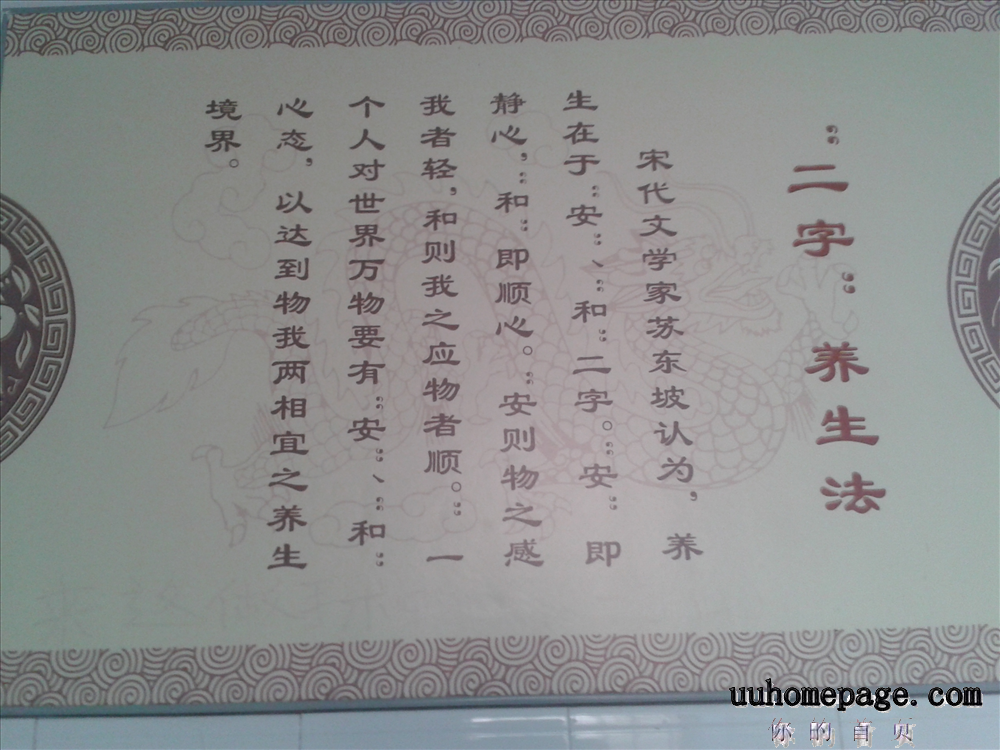 “二字”养生法
宋代文学家苏东坡认为，养
生在于“安”、“和”二字。“安”即
静心，“和”即顺心。“安则物之感
我者轻，和则我之应物者顺。”一
个人对世界万物要有“安”、“和”
心态，以达到物我两相宜之养生
境界。
uuhomepage.com
你的首页